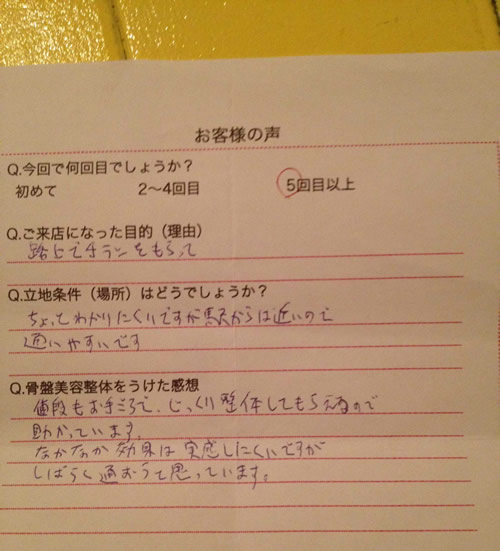 お客様の声
Q.今回で何回目でしょうか?
初めて 2〜4回目 5回目以上
Q.ご来店になった目的(理由)
路上でチラシをもらって
Q.立地条件(場所)はどうでしょうか?
ちょっとわかりにくいですが駅からは近いので
通いやすいです
Q.骨盤美容整体をうけた感想
値段もお手ごろで、じっくり整体してもらえるので
助かっています。
なかなか効果は実感しにくいですが
しばらく通おうと思っています。